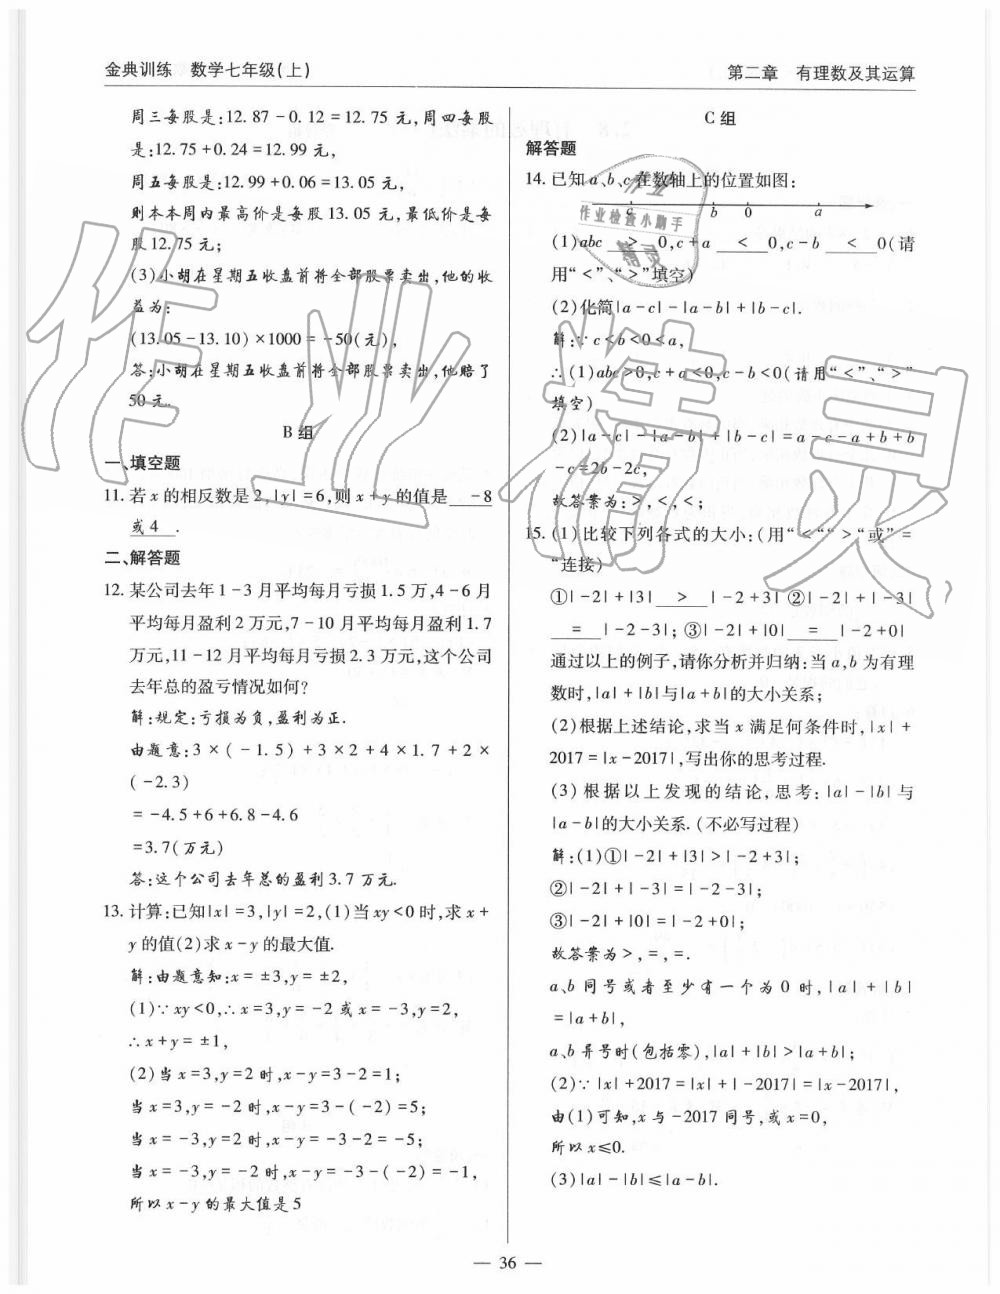 金典训练 数学七年级(上)
第二章 有理数及其运算
周三每股是:12.87-0.12=12.75 元,周四每股
是:12.75+0.24=12.99 元,
周五每股是:12.99+0.06=13.05 元,
则本本周内最高价是每股 13.05 元,最低价是每
股 12.75 元;
(3)小胡在星期五收盘前将全部股票卖出,他的收
益为:
(13.05-13.10)×1000=-50(元),
答:小胡在星期五收盘前将全部股票卖出,他赔了
50 元.
B 组
一、填空题
11.若 x 的相反数是 2,|y|=6,则 x+y 的值是 -8
或4 .
二、解答题
12.某公司去年 1-3 月平均每月亏损 1.5 万,4-6 月
平均每月盈利 2 万元,7-10 月平均每月盈利 1.7
万元,11-12 月平均每月亏损 2.3 万元,这个公司
去年总的盈亏情况如何?
解:规定:亏损为负,盈利为正.
由题意:3×(-1.5)+3×2+4×1.7+2×
(-2.3)
=-4.5+6+6.8-4.6
=3.7(万元)
答:这个公司去年总的盈利 3.7 万元.
13.计算:已知|x|=3,|y|=2,(1)当 xy<0 时,求 x+
y 的值(2)求 x-y 的最大值.
解:由题意知:x=±3,y=±2,
(1)∵xy<0,∴x=3,y=-2 或 x=-3,y=2,
∴x+y=±1,
(2)当 x=3,y=2 时,x-y=3-2=1;
当 x=3,y=-2 时,x-y=3-(-2)=5;
当 x=-3,y=2 时,x-y=-3-2=-5;
当 x=-3,y=-2 时,x-y=-3-(-2)=-1,
所以 x-y 的最大值是 5
C 组
解答题
14.已知 a、b、c 在数轴上的位置如图:
c b 0 a
(1)abc > 0,c+a < 0,c-b < 0(请
用“<”、“>”填空)
(2)化简|a-c|-|a-b|+|b-c|.
解:∵c<b<0<a,
∴(1)abc>0,c+a<0,c-b<0(请用“<”、“>”
填空)
(2)|a-c|-|a-b|+|b-c|=a-c-a+b+b
-c=2b-2c,
故答案为:>,<,<;
15.(1)比较下列各式的大小:(用“<““>“或”=
“连接)
①|-2|+|3| > |-2+3| ②|-2|+|-3|
= |-2-3|; ③|-2|+|0| = |-2+0|
通过以上的例子,请你分析并归纳:当 a,b 为有理
数时,|a|+|b|与|a+b|的大小关系;
(2)根据上述结论,求当 x 满足何条件时,|x|+
2017=|x-2017|,写出你的思考过程.
(3)根据以上发现的结论,思考:|a|-|b|与
|a-b|的大小关系.(不必写过程)
解:(1)①|-2|+|3|>|-2+3|;
②|-2|+|-3|=|-2-3|;
③|-2|+|0|=|-2+0|;
故答案为>,=,=.
a、b 同号或者至少有一个为 0 时,|a|+|b|
=|a+b|,
a、b 异号时(包括零),|a|+|b|>|a+b|;
(2)∵|x|+2017=|x|+|-2017|=|x-2017|,
由(1)可知,x 与-2017 同号,或 x=0,
所以 x≤0.
(3)|a|-|b|≤|a-b|.
— 36 —
作业精灵
作业
作业检查小助手
精灵